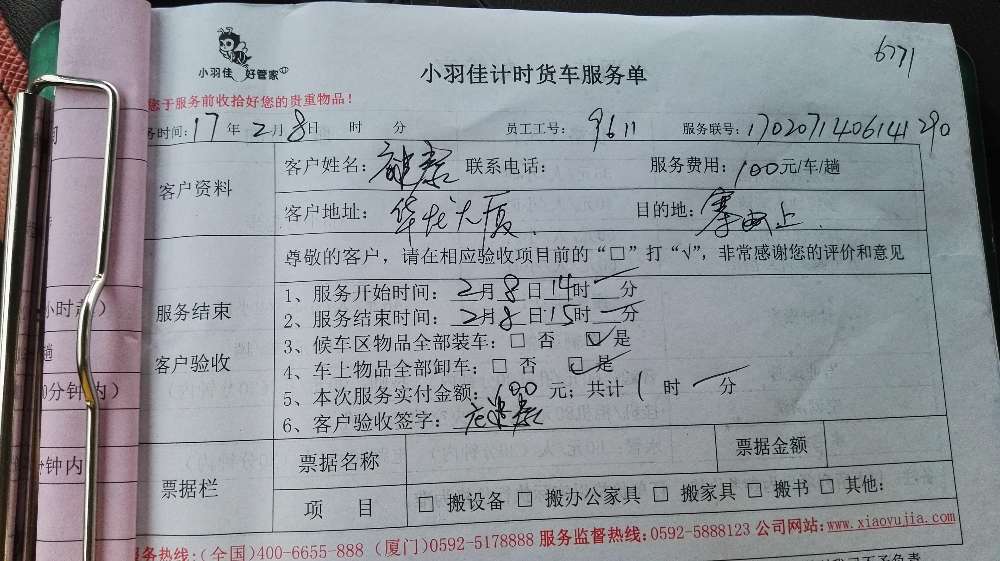 6771
小羽佳 好管家
小羽佳计时货车服务单
您于服务前收拾好您的贵重物品！
务时间：17年2月8日 时 分 员工工号：9611 服务联号：1702071406141290
客户资料
客户姓名： 联系电话： 服务费用：100元/车/趟
客户地址：华龙大厦 目的地：寨上
尊敬的客户，请在相应验收项目前的“□”打“√”，非常感谢您的评价和意见
服务结束
客户验收
1、服务开始时间：2月8日14时一分
2、服务结束时间：2月8日15时一分
3、候车区物品全部装车：□ 否 ☑是
4、车上物品全部卸车：□ 否 ☑是
5、本次服务实付金额：100元；共计1时一分
6、客户验收签字：
票据栏
票据名称 票据金额
项 目 □ 搬设备 □ 搬办公家具 □ 搬家具 □ 搬书 □ 其他：
务热线：(全国)400-6655-888 (厦门)0592-5178888 服务监督热线：0592-5888123 公司网站：www.xiaoyujia.com
小时
趟
0分钟内)
钟内